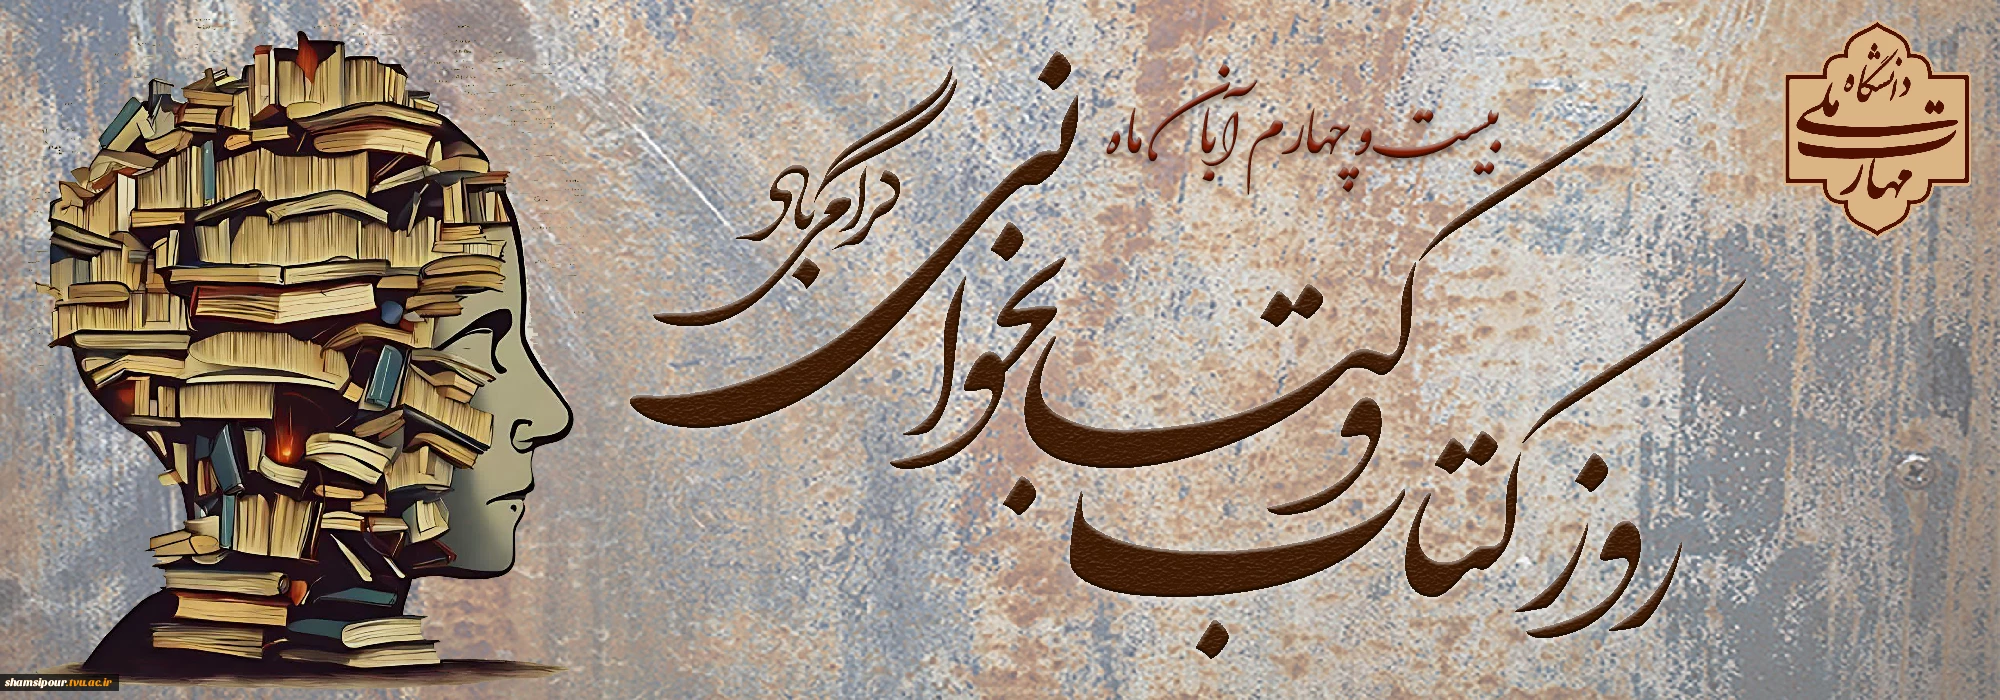 دانشگاه
ملی
مهارت
بیست و چهارم آبان ماه
روز کتاب و کتابخوانی
گرامی باد
shamsipour.tvu.ac.ir